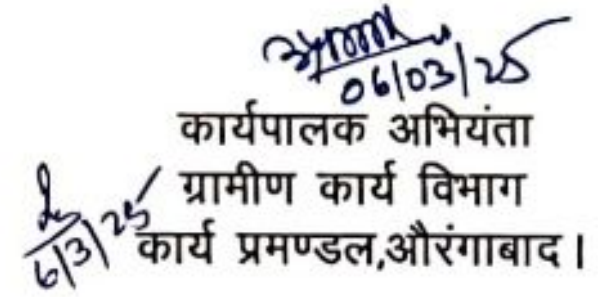 06/03/25
कार्यपालक अभियंता
ग्रामीण कार्य विभाग
6/3/25
कार्य प्रमण्डल,औरंगाबाद।